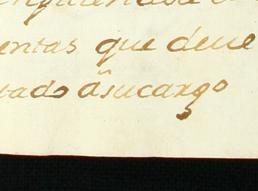 entas que deve
tado âsucargo